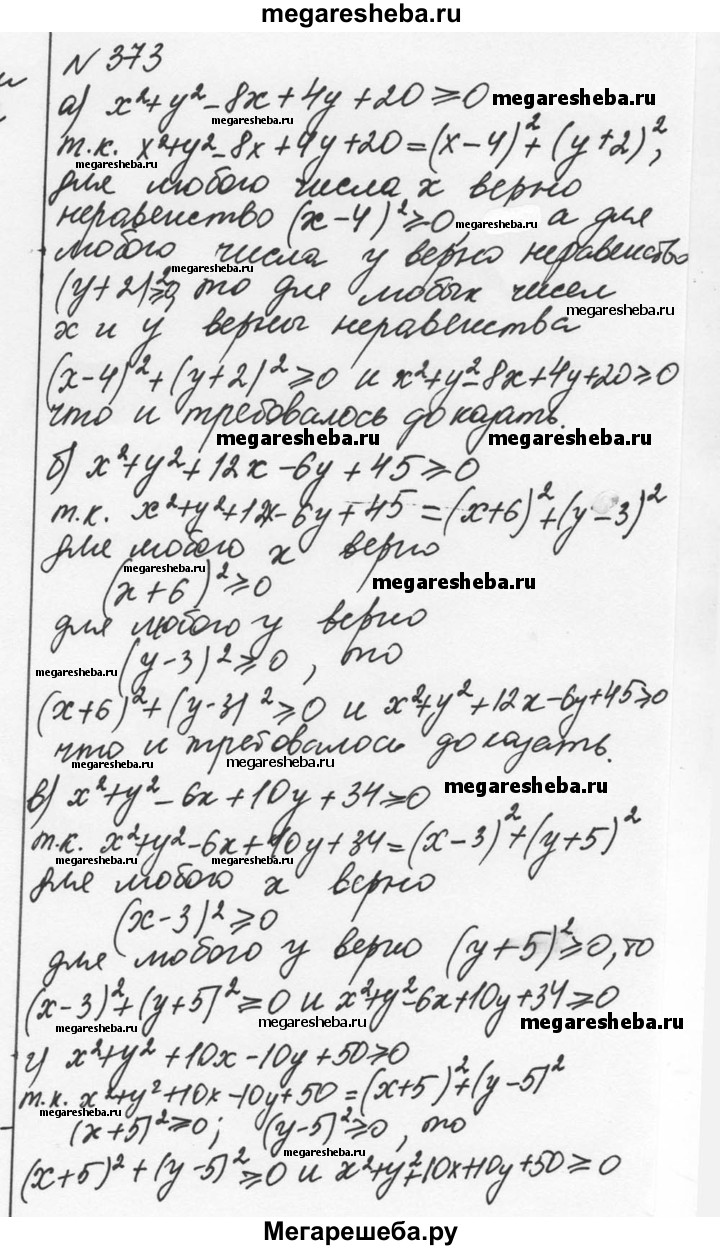 megaresheba.ru
N 373
а) x²+y²-8x+4y+20≥0 megaresheba.ru
megaresheba.ru
т.к. x²+y²-8x+4y+20=(x-4)²+(y+2)²,
megaresheba.ru
для любого числа x верно
неравенство (x-4)²≥0, megaresheba.ru а для
любого числа y верно неравенство
megaresheba.ru
(y+2)²≥0, то для любых чисел
megaresheba.ru
x и y верны неравенства
(x-4)²+(y+2)²≥0 и x²+y²-8x+4y+20≥0
что и требовалось доказать.
megaresheba.ru megaresheba.ru
б) x²+y²+12x-6y+45≥0
т.к. x²+y²+12x-6y+45=(x+6)²+(y-3)²
для любого x верно
(x+6)²≥0 megaresheba.ru
для любого y верно
(y-3)²≥0, то
megaresheba.ru
(x+6)²+(y-3)²≥0 и x²+y²+12x-6y+45≥0
что и требовалось доказать.
megaresheba.ru megaresheba.ru
в) x²+y²-6x+10y+34≥0 megaresheba.ru
т.к. x²+y²-6x+10y+34=(x-3)²+(y+5)²
megaresheba.ru megaresheba.ru
для любого x верно
(x-3)²≥0
для любого y верно (y+5)²≥0, то
(x-3)²+(y+5)²≥0 и x²+y²-6x+10y+34≥0
megaresheba.ru megaresheba.ru megaresheba.ru
г) x²+y²+10x-10y+50≥0
т.к. x²+y²+10x-10y+50=(x+5)²+(y-5)²
megaresheba.ru
(x+5)²≥0; (y-5)²≥0, то
(x+5)²+(y-5)²≥0 и x²+y²+10x+10y+50≥0
Мегарешеба.ру